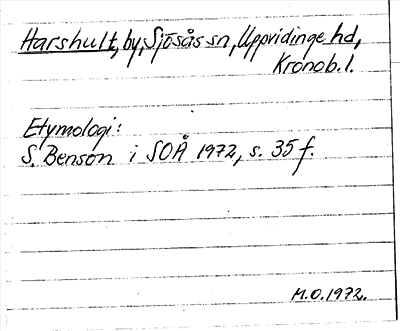 Harshult, by, Sjösås sn, Uppvidinge hd,
Kronob. l.
Etymologi:
S. Benson i SOÅ 1972, s. 35 f.
M.O. 1972.